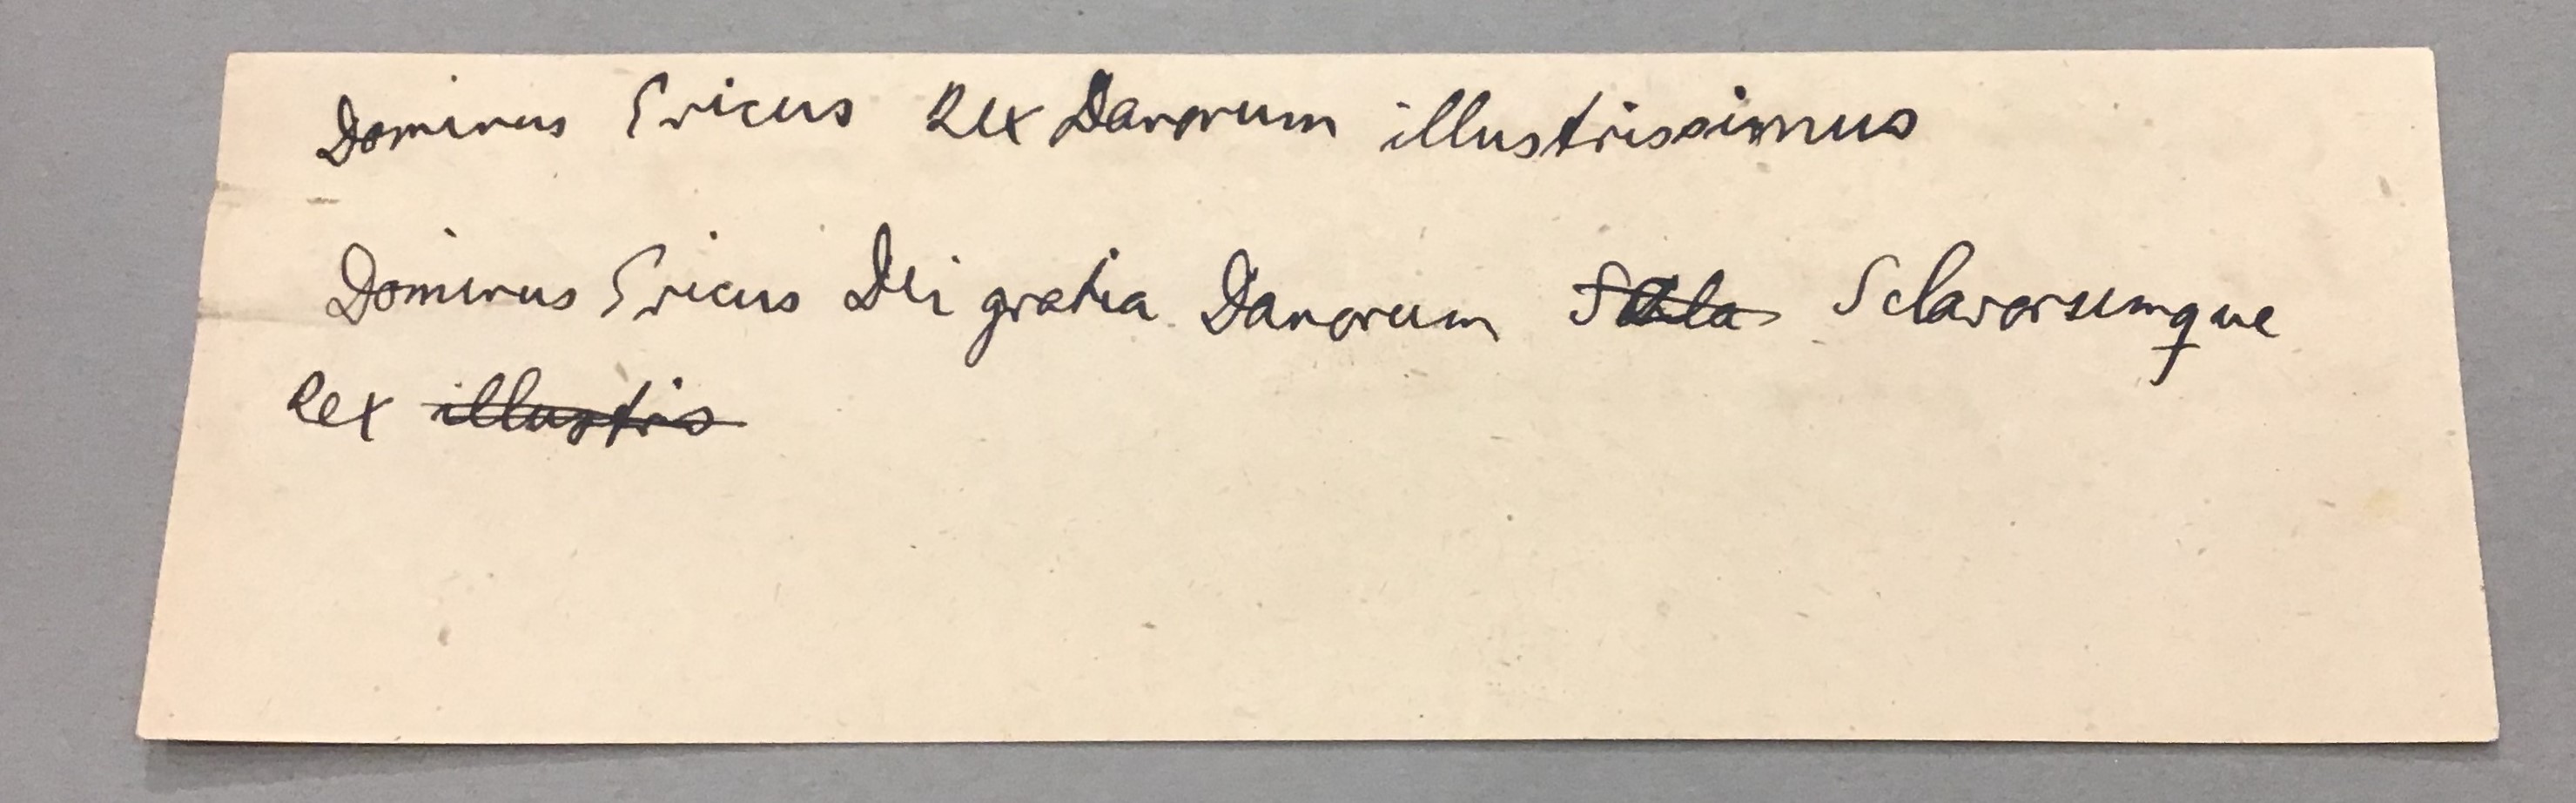 Dominus Ericus Rex Danorum illustrissimus
Dominus Ericus Dei gratia Danorum Sclavorumque
Rex illustris